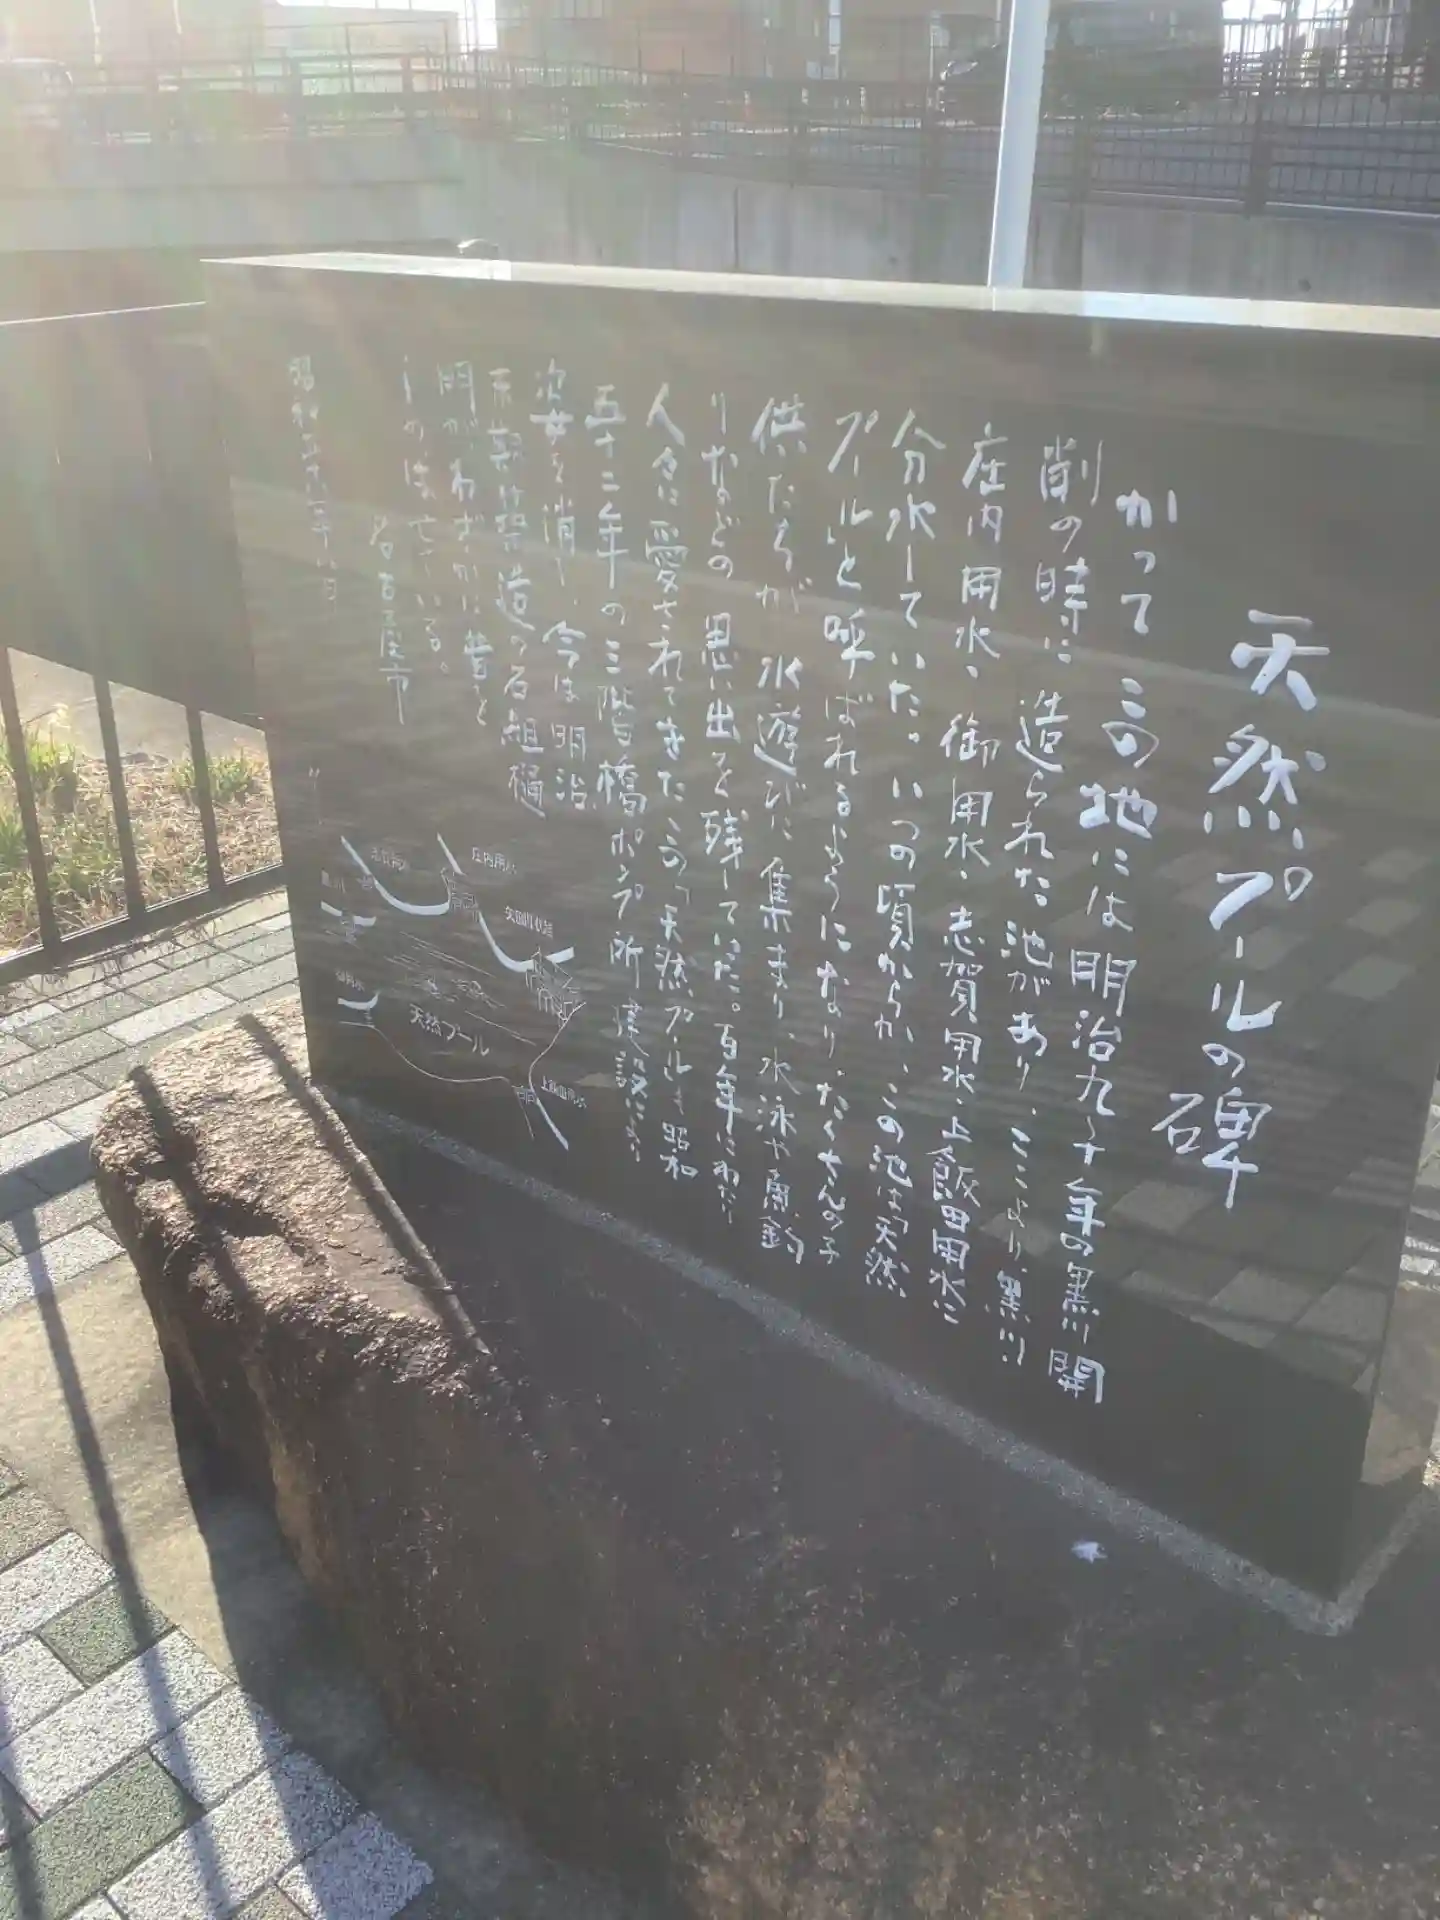 天然プールの碑
かつてこの地には明治九、十年の黒川開
削の時に造られた池があり、ここより、黒川、
庄内用水、御用水、志賀用水、上飯田用水に
分水していた。いつの頃からか、この池は「天然
プール」と呼ばれるようになり、たくさんの子
供たちが水遊びに集まり、水泳や魚釣
りなどの思い出を残していた。百年にわたり
人々に愛されてきたこの「天然プール」も昭和
五十二年の三階橋ポンプ所建設により
姿を消し、今は明治
末期築造の石組樋
門がわずかに昔を
しのばせている。
名古屋市
志賀用水
庄内用水
黒川
矢田川伏越
御用水
天然プール
上飯田用水